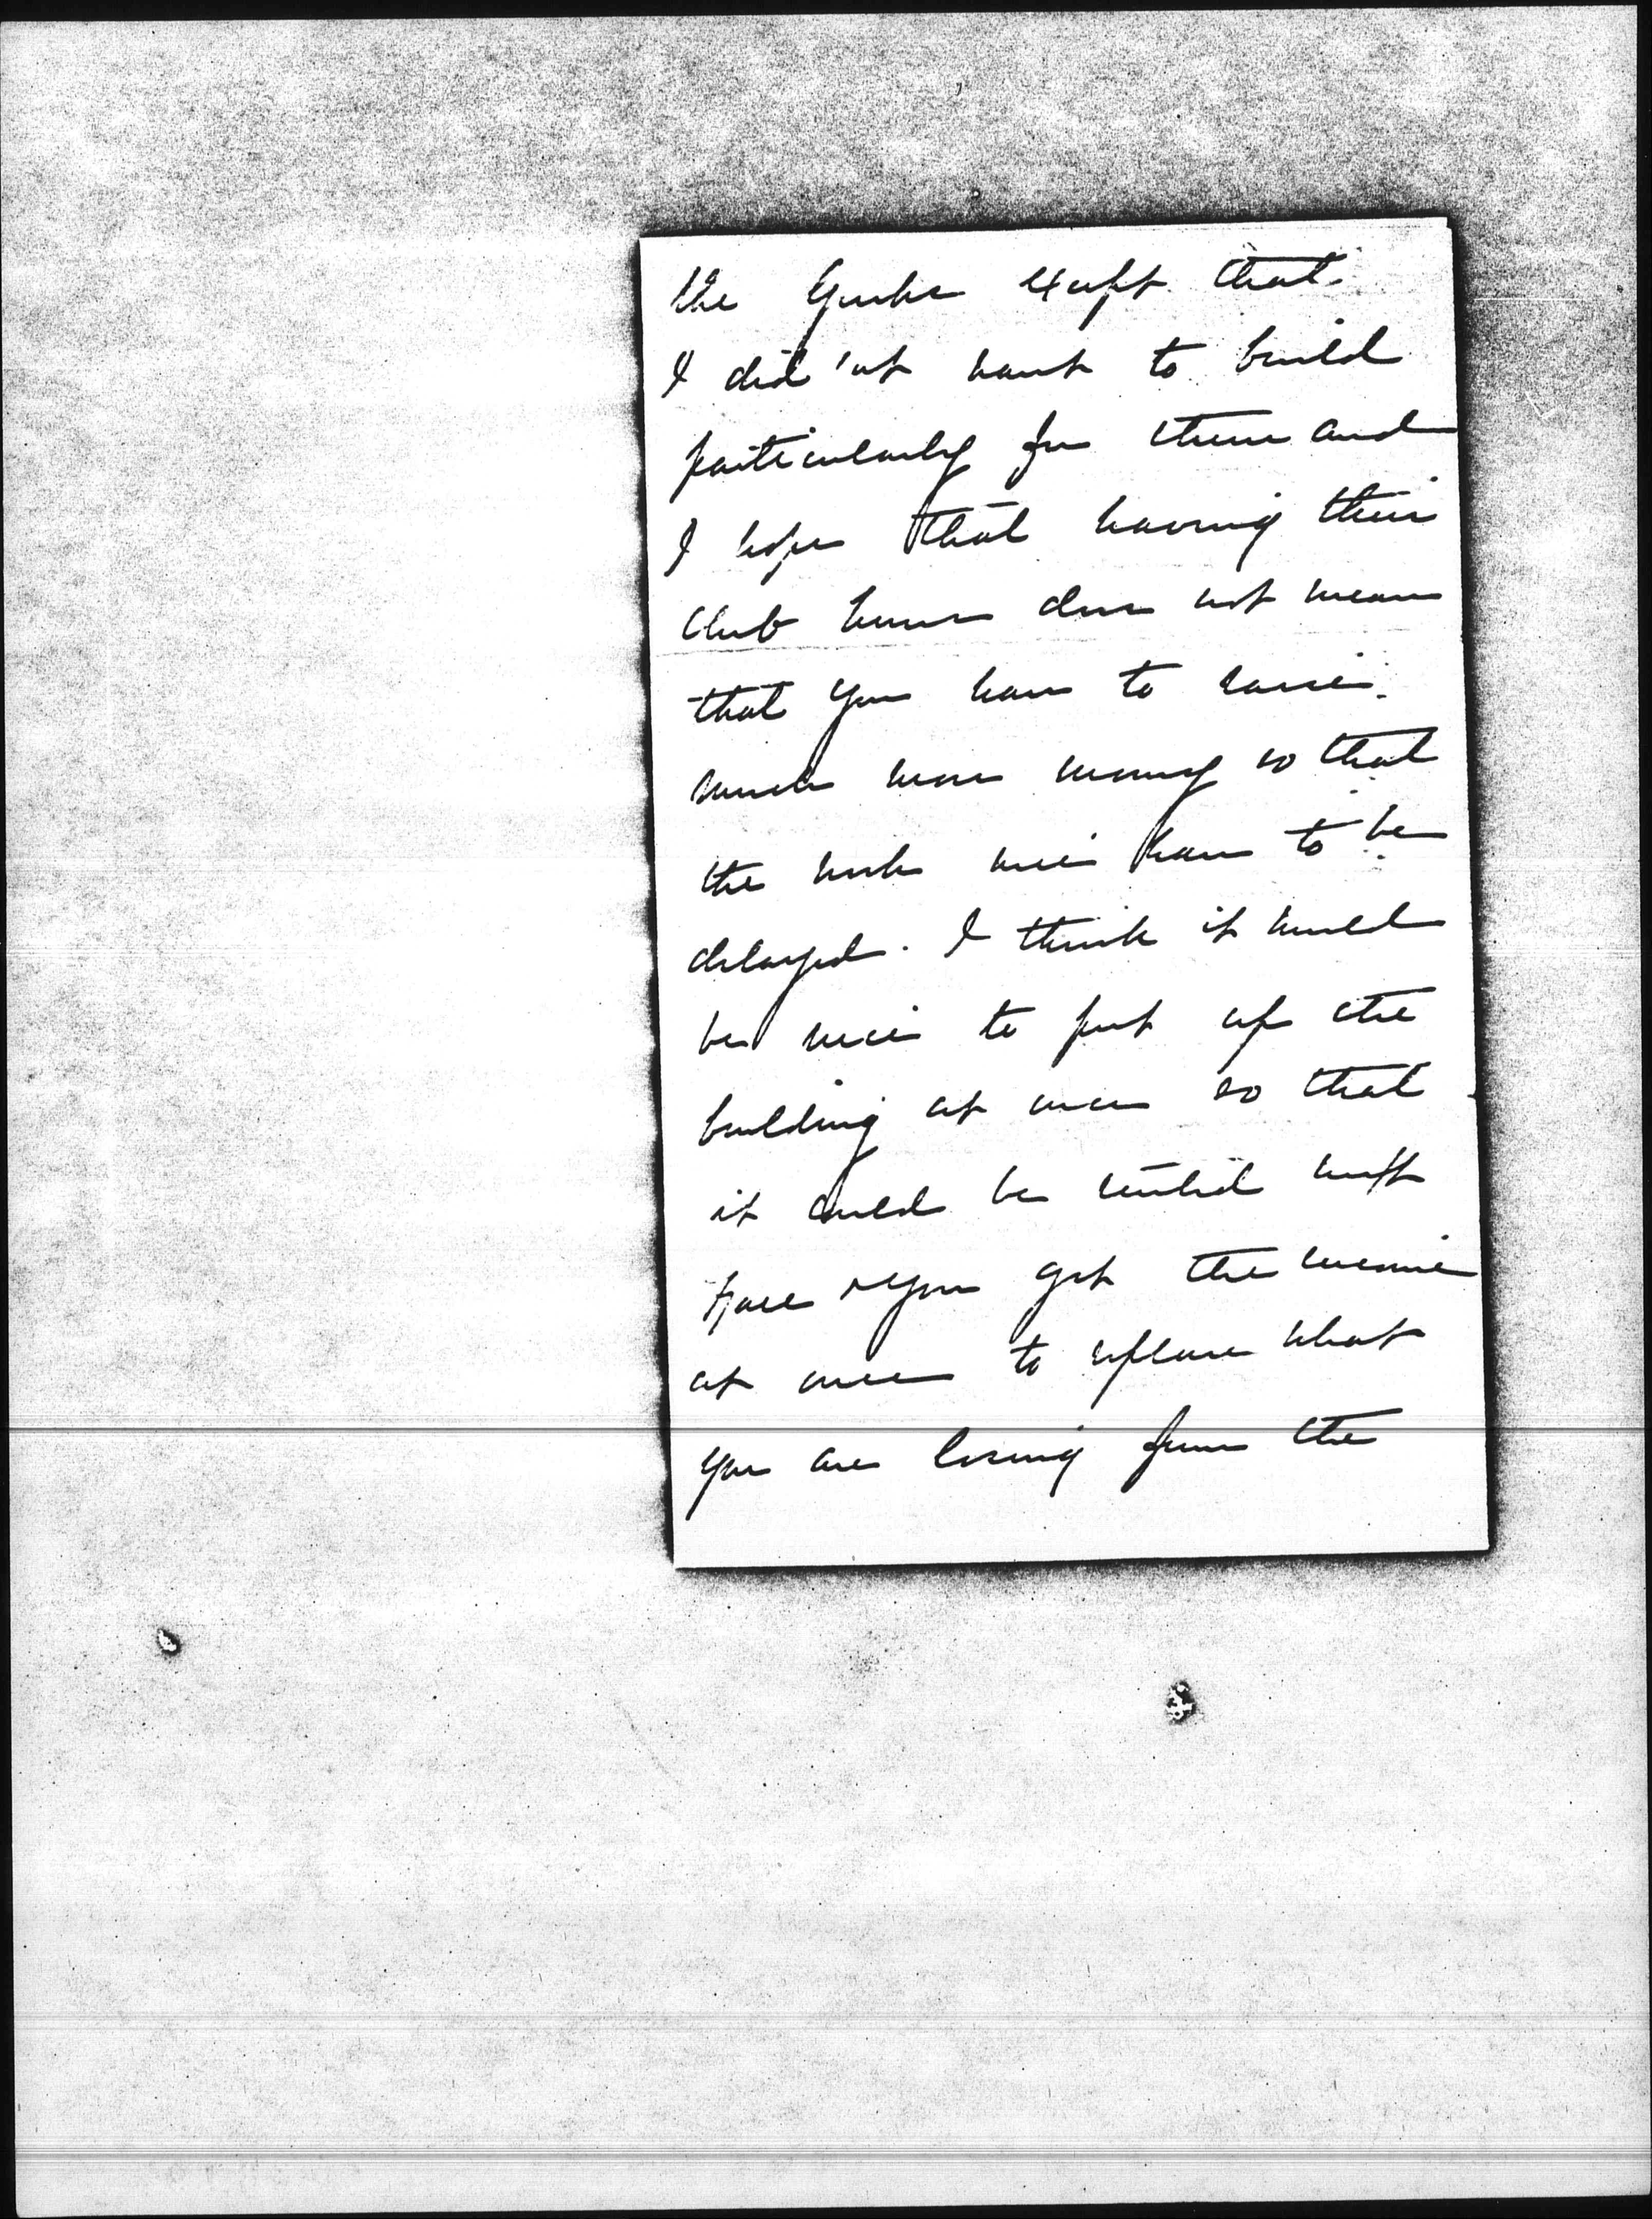 the Yorke except that
I did'nt want to build
particularly for them and
I hope that having their
club house does not mean
that you have to raise
much more money so that
the work will have to be
delayed. I think it would
be nice to put up the
building at once so that
it could be rented next
Fall & you get the income
at once to replace what
you are losing from the